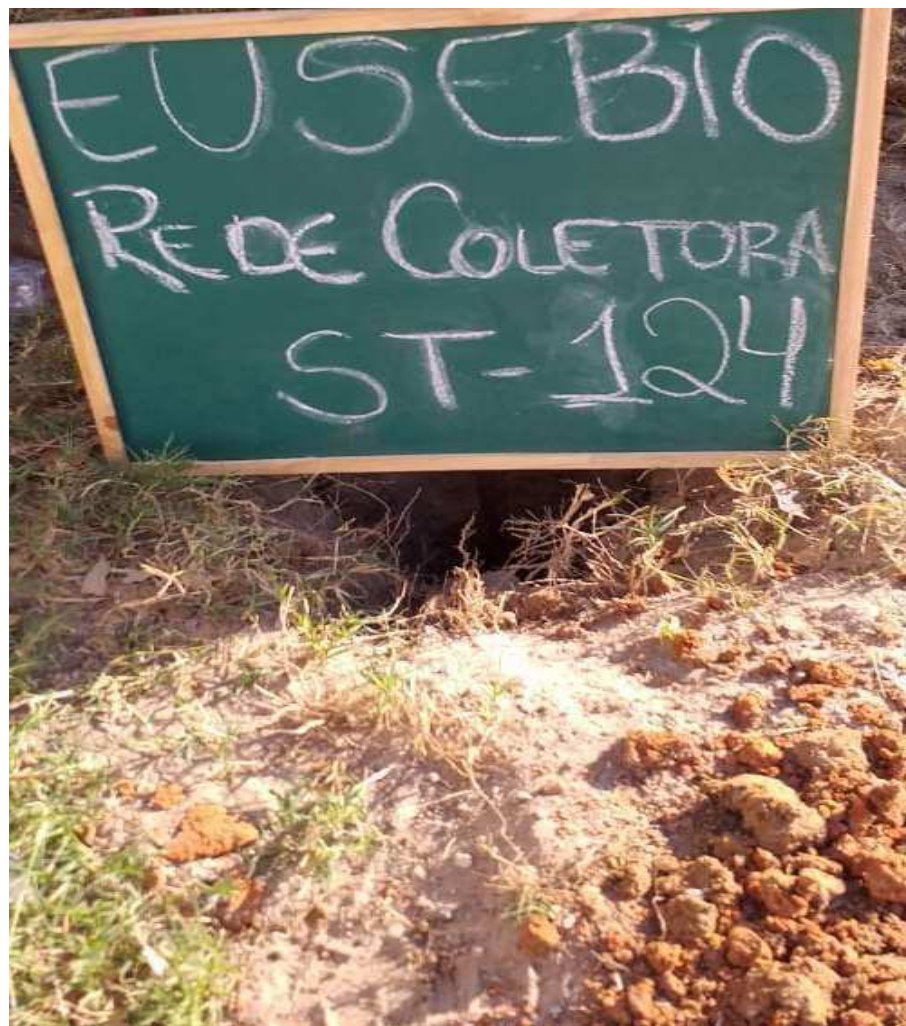 EUSEBiO
REDE COLETORA
ST-124